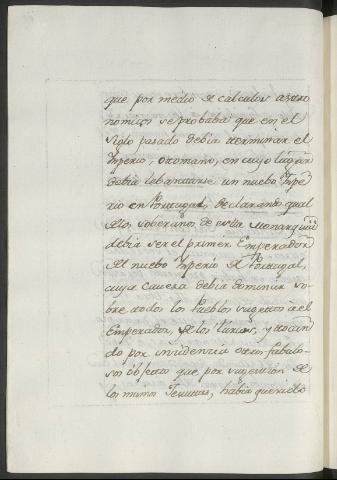 que por medio de calculos astro
nomicos se probaba que en el
Siglo pasado debia terminar el
Imperio Otomano, en cuyo lugar
debia lebantarse un nuebo Impe
rio en Portugal, declarando qual
de los soberanos de esta Monarquia
debia ser el primer Emperador
del nuebo Imperio de Portugal,
cuya Cavera debia dominar so-
bre todos los Pueblos sugetos a el
Emperador, de los Turios, y tocan
do por incidencia otros fabulo-
sos objectos que por sugestion de
los mismos Jesuitas, habia querido